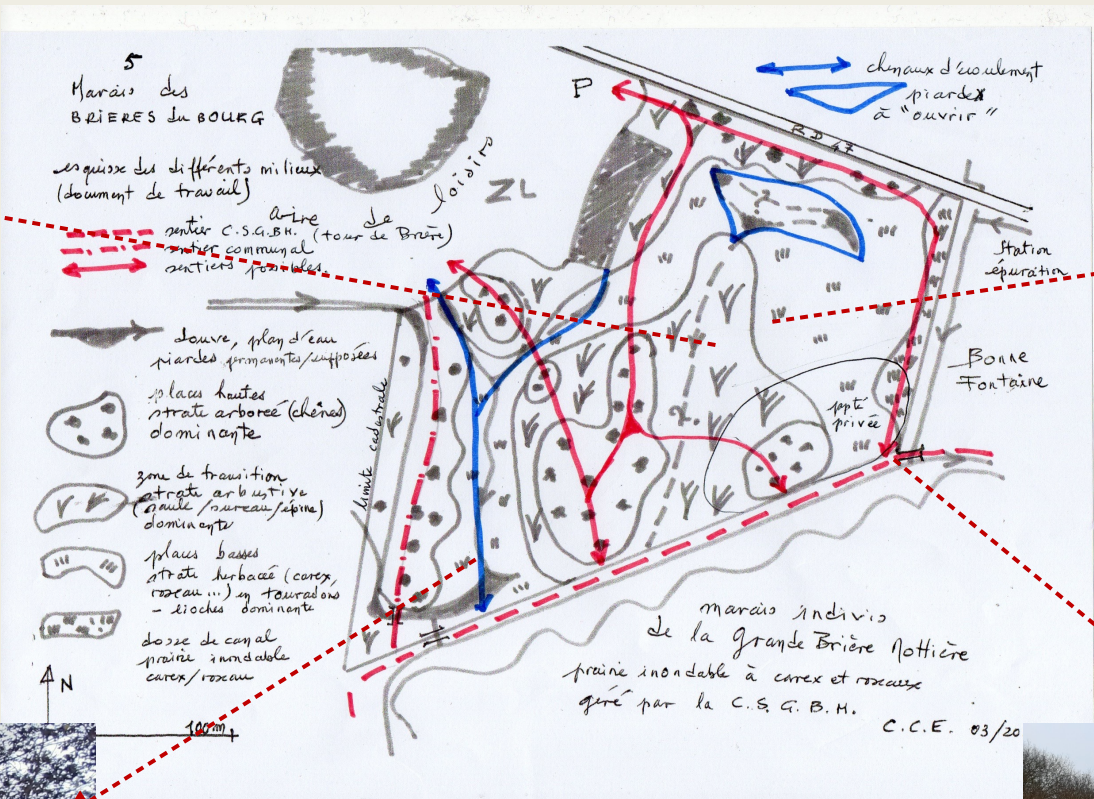 5
Marais des
BRIERES du BOURG
esquisse des différents milieux
(document de travail)
sentier C.S.G.BH. (tour de Brière)
sentier communal
sentiers possibles.
douve, plan d'eau
piardes permanentes/supposées
places hautes
strate arborée (chênes)
dominante
zone de transition
strate arbustive
(saule/bureau/épine)
dominante
places basses
strate herbacée (carex,
roseau...) en touradons
- lioches dominante
dosse de canal
prairie inondable
carex/roseau
N
100m
Aire de loisirs
ZL
P
chenaux d'écoulement
piardes
à "ouvrir"
RD 47
Station
épuration
Bonne
Fontaine
ppté
privée
?
?
limite cadastrale
marais indivis
de la Grande Brière Mottière
prairie inondable à carex et roseaux
géré par la C.S.G.B.M.
C.C.E. 03/20